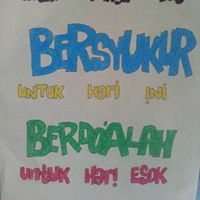 BERSYUKUR
UNTUK HARI INI
BERDO'ALAH
UNTUK HARI ESOK